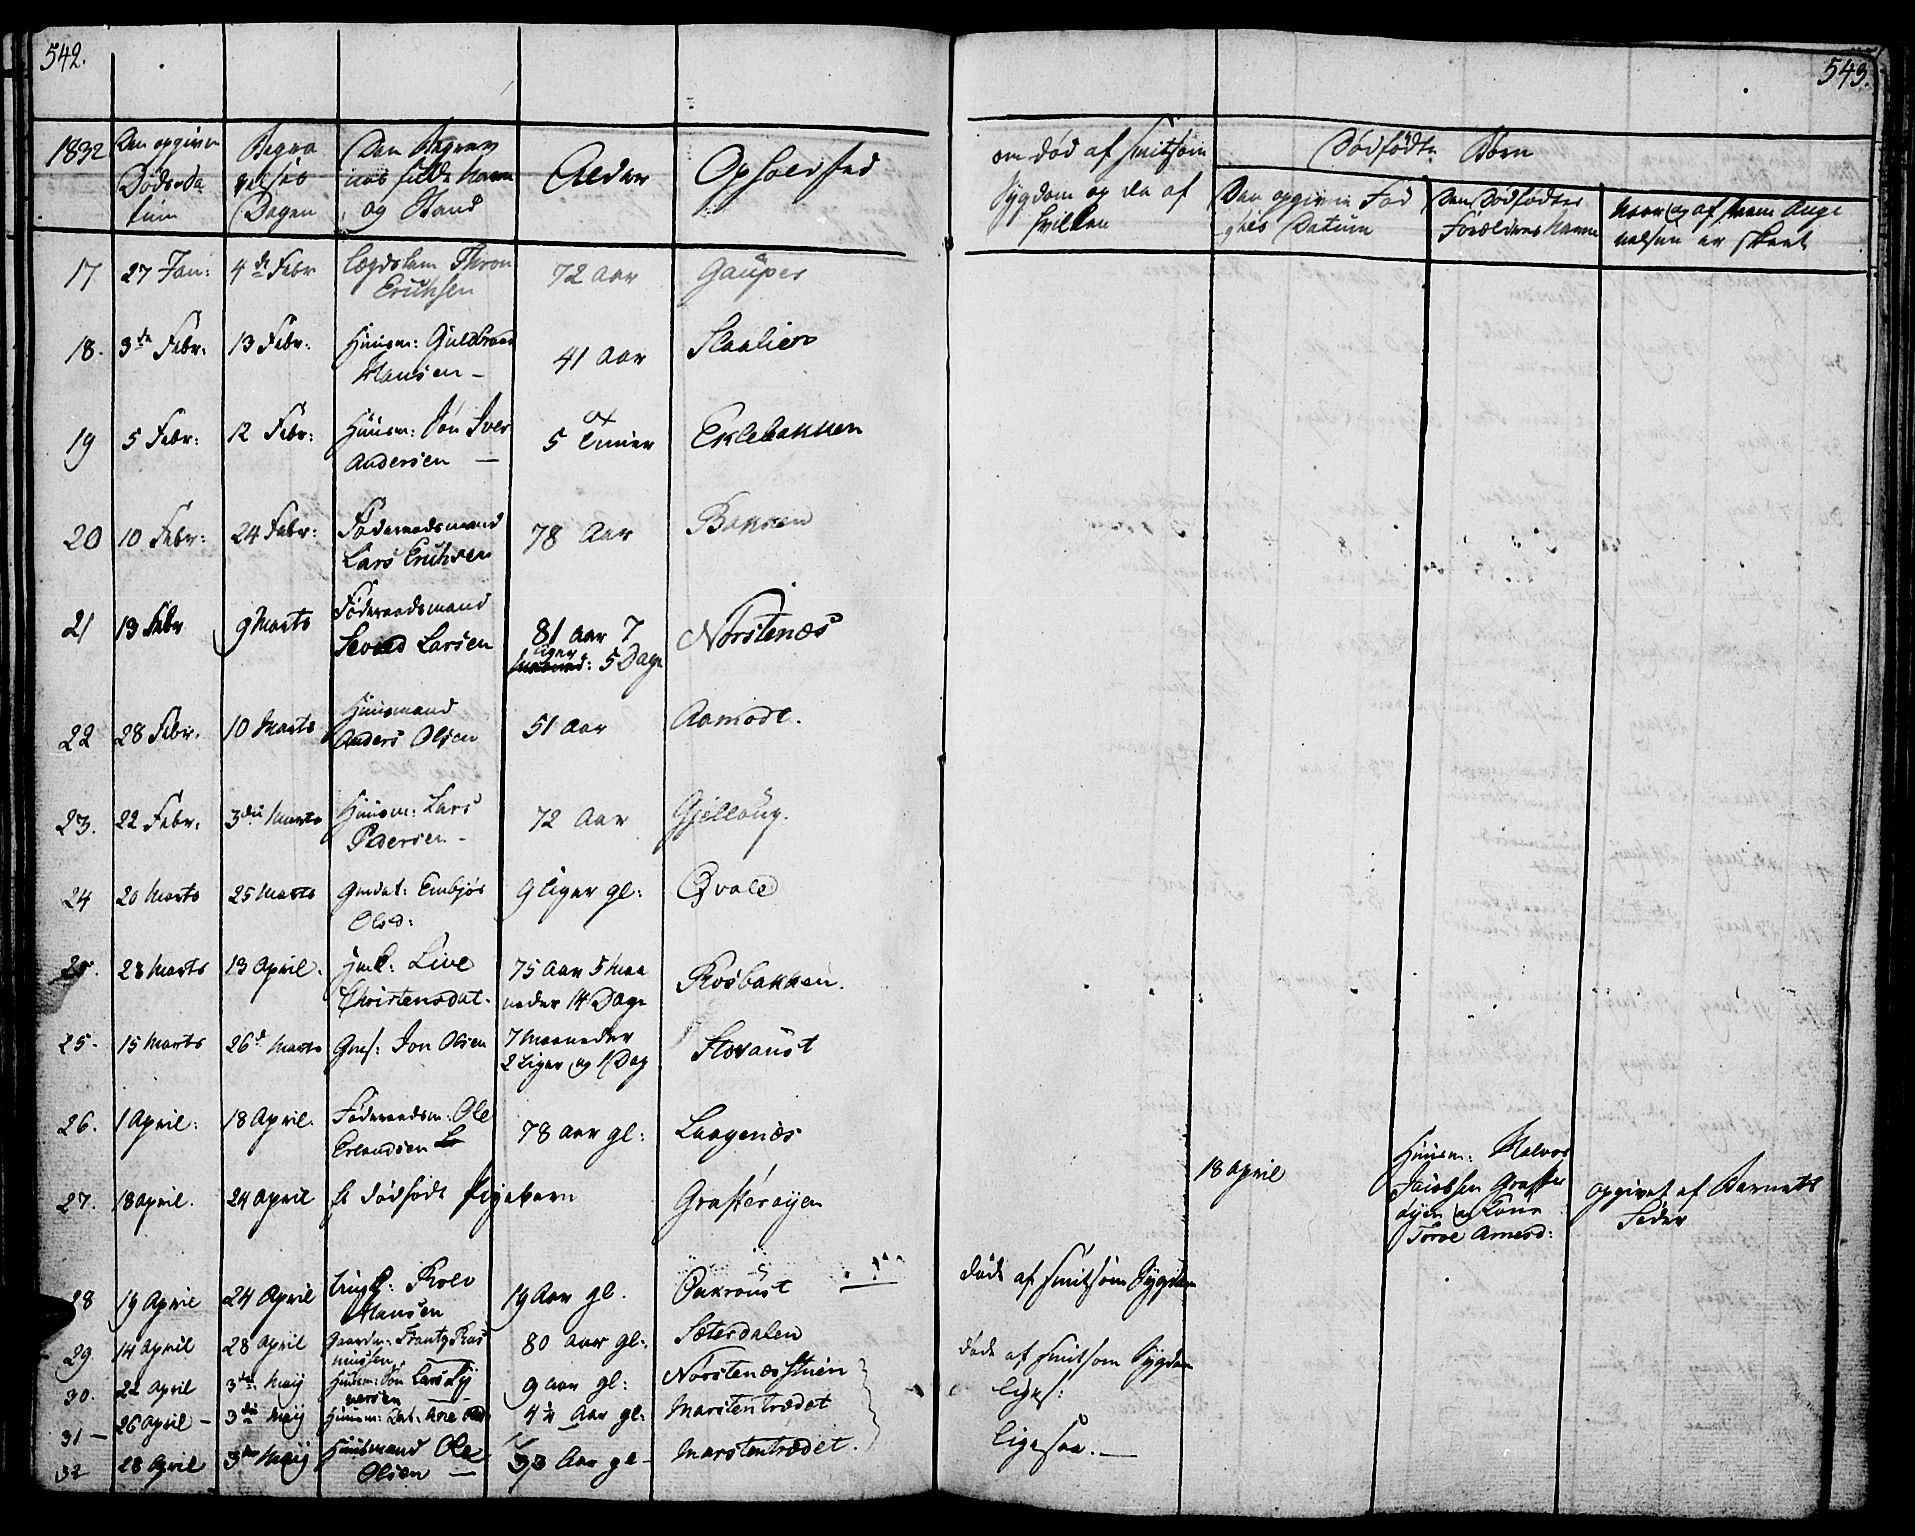 542.
543.
1832
Den opgivne Døds-Da-tum
Begra-velses Dagen
Den Begrav-nes fulde Navn og Stand
Alder
Opholdsted
om død af smitsom Sygdom og da af hvilken
Dødfødte Børn
Den opgivne Fød-sels Datum
Den Dødfødtes Forældres Navne
Naar og af hvem Angi-velsen er skeet
17 27 Jan: 4de Febr Lægdslem Thron
Erichsen 72 Aar Gaúper
18. 3de Febr: 13 Febr. Huusm: Guldbrand
Hansen - 41 Aar Staalien
19 5 Febr: 12 Febr: Huusm: Søn Iver
Andersen — 5 Timer Eklebakken
20 10 Febr: 24 Febr: Føderaadsmand
Lars Erichsen 78 Aar Bakken
21 13 Febr 9 Marts Føderaadsmand
Larsen 81 Aar 7
Uger 5 Dage Norstenæs
22 28 Febr. 10 Marts Huusmand
Anders Olsen 51 Aar Aamodt.
23. 22 Febr. 3die Marts Huusm: Lars
Pedersen - 72 Aar Gjelloug.
24 20 Marts 25 Marts Gmdat: Embjør
Olsd: 9 Uger gl: Qvale
25. 28 Marts 13 April. Live
Christensdat. 75 Aar 5 Maa
neder 14 Dage Rosbakken.
25. 15 Marts 26d Marts Gms: Jon Olsen 7 Maaneder
2 Uger og 1 Dag Storaust
26. 1 April: 18 April. Føderaadsm: Ole
Erlandsen 78 Aar gl: Laagenæs
27. 18 April. 24 April Et dødfødt Pigebarn Grafferøyen
18 April
Huusm: Halvor
Jacobsen Graffer
øyen og Kone
Torve Arnesd:
opgivet af Barnets
Fader
28 19 April 24 April Ungk: Rolv
Hansen 19 Aar gl. Opkroust døde af smitsom Sygdom
29. 14 April 28 April Gaardm: Frantz Ras
mussen 80 Aar gl: Sæterdalen døde af smitsom Sygdom
30. 22 April 3die Maij Huusm: Søn Lars Sy
versen 9 Aar gl: Norstenæsstuen liges:
31 - 26 April - 3die Maij Huusm: Dat: Ane 4½ Aar gl: Marstentrædet
32 28 April 3die Maij Huusmand Ole
Olsen — 33 Aar gl - Marstentrædet. ligesaa. —